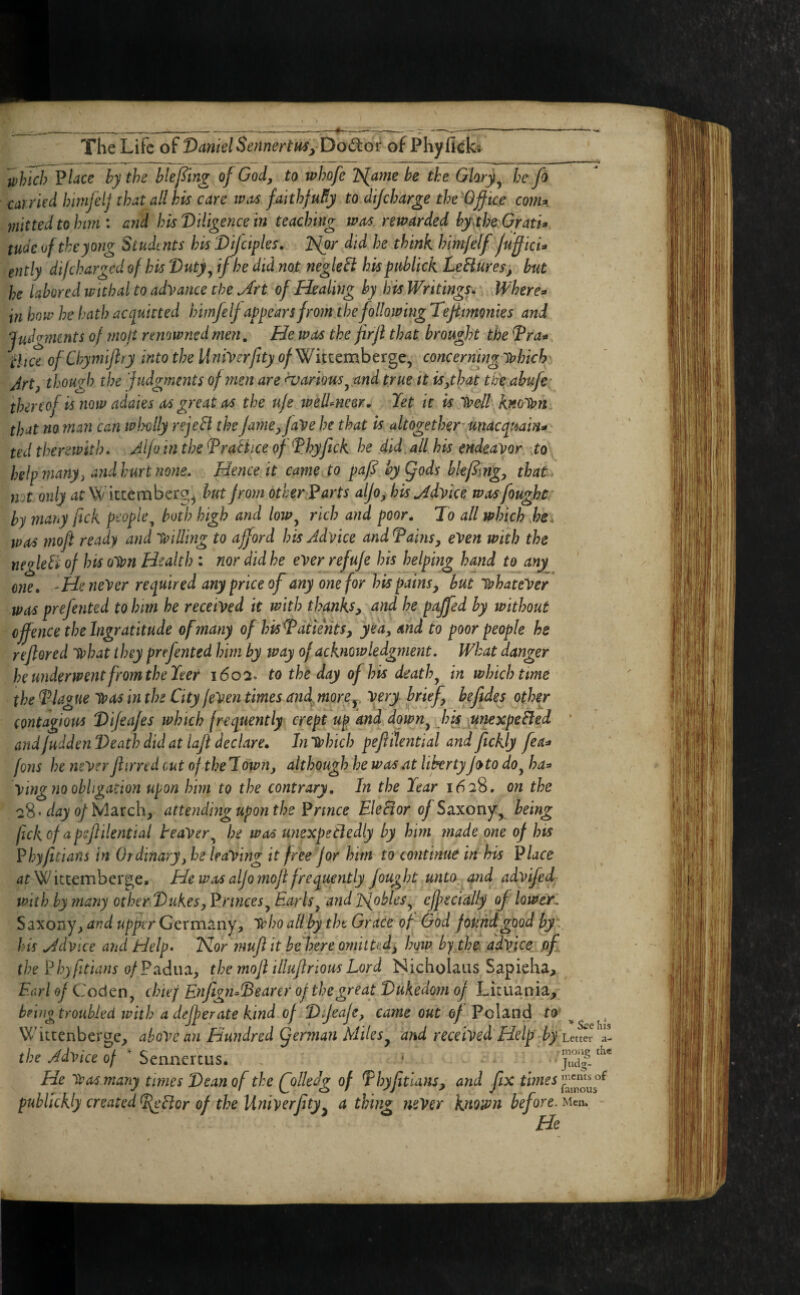 The Life of Daniel Sennertus, Doctor of Physick.
which Place by the blessing of God, to whose Name be the Glory, he so
carried himself that all his care was faithfully to discharge the Office com-
mitted to him : and his Diligence in teaching was rewarded by the Grati-
tude of the yong Students his Disciples. Nor did he think himself suffici-
ently discharged of his Duty, if he did not neglect his publick Lectures, but
he labored withal to advance the Art of Healing by his Writings. Where-
in how he hath acquitted himself appears from the following Testimonies and
Judgments of most renowned men. He was the first that brought the Pra-
ctice of Chymistry into the University of Wittemberge, concerning which
Art, though the Judgments of men are various, and true it is, that the abuse
thereof is now adaies as great as the use well-neer. Yet it is well known
that no man can wholly reject the same, save he that is altogether unacquain-
ted therewith. Also in the Practice of Physick he did all his endeavor to
help many, and hurt none. Hence it came to pass by Gods blessing, that
not only at Wittemberg, but from other Parts also, his Advice was sought
by many sick people, both high and low, rich and poor. To all which he
was most ready and willing to afford his Advice and Pains, even with the
neglect of his own Health : nor did he ever refuse his helping hand to any
one. He never required any price of any one for his pains, but whatever
was presented to him he received it with thanks, and he passed by without
offence the Ingratitude of many of his Patients, yea, and to poor people he
restored what they presented him by way of acknowledgment. What danger
he underwent from the Yeer 1602. to the day of his death, in which time
the Plague was in the City seven times and more, very brief, besides other
contagious Diseases which frequently crept up and down, his unexpected
and sudden Death did at last declare. In which pestilential and sickly sea-
sons he never stirred out of the Town, although he was at liberty so to do, ha-
ving no obligation upon him to the contrary. In the Year 1628. on the
28. day of March, attending upon the Prince Elector of Saxony, being
sick of a pestilential Feaver, he was unexpectedly by him made one of his
Physitians in Ordinary, he leaving it free for him to continue in his Place
at Wittemberge. He was also most frequently sought unto and advised
with by many other Dukes, Princes, Earls, and Nobles, especially of lower
Saxony, and upper Germany, who all by the Grace of God found good by
his Advice and Help. Nor must it be here omitted, how by the advice of
the Physitians of Padua, the most illustrious Lord Nicholaus Sapieha,
Earl of Coden, chief Ensign-Bearer of the great Dukedom of Lituania,
being troubled with a desperate kind of Disease, came out of Poland to
Wittenberge, above an Hundred German Miles, and received Help by
the Advice of * Sennertus.
* See his
Letter a-
mong the
Judg-
ments of
famous
Men.
He was many times Dean of the Colledg of Physitians, and six times
publickly created Rector of the University, a thing never known before.
He